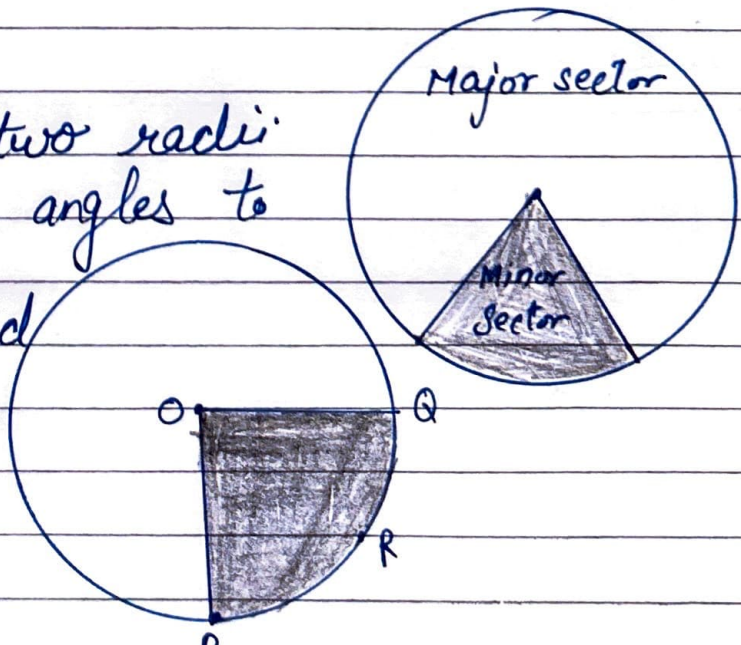 Major sector
two radii
angles to
Minor
sector
d
O
Q
R